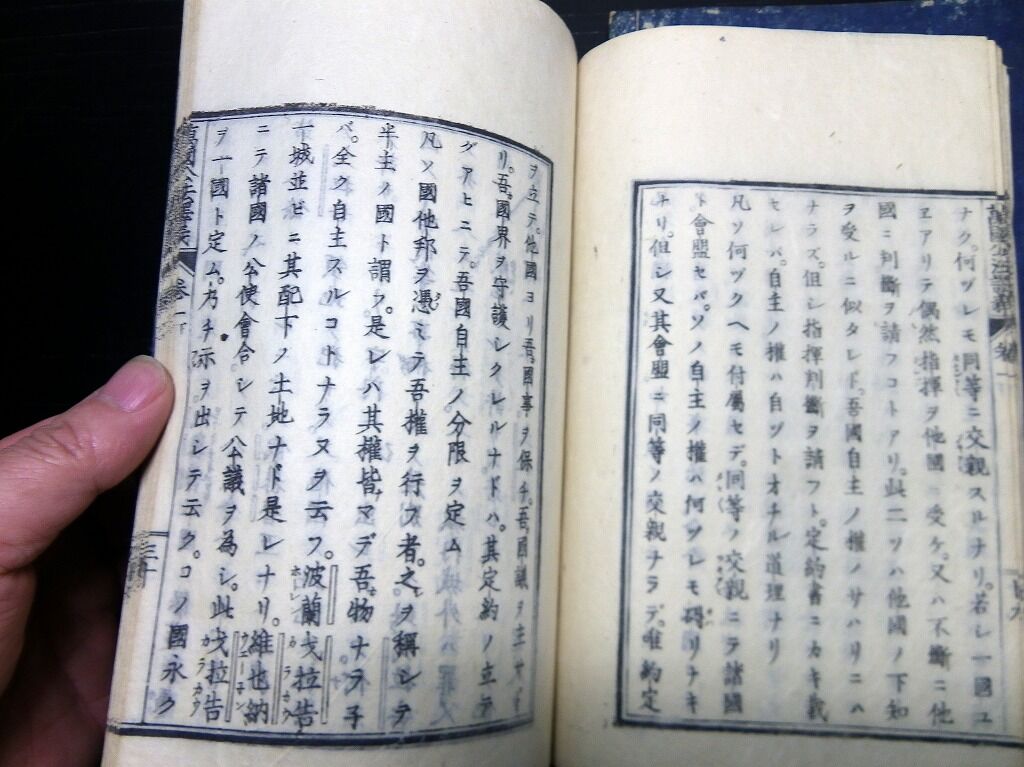 ナク。何ヅレモ同等ニ交親スルナリ。若シ一國ユ
ヱアリテ偶然指揮ヲ他國ニ受ケ。又ハ不斷ニ他
國ニ判斷ヲ請フコトアリ。此二ツハ他國ノ下知
ヲ受ルニ似タレド。吾國自主ノ權ノサハリニハ
ナラズ。但シ指揮判斷ヲ請フト。定約書ニカキ載
セレバ。自主ノ權ハ自ヅトオチル道理ナリ
凡ソ何ヅクヘモ付屬セデ。同等ノ交親ニテ諸國
ト會盟セバ。ソノ自主ノ權ハ何ヅレモ碍リナキ
ナリ。但シ又其會盟ニ同等ノ交親ナラデ。唯約定
ヲ立テ。他國ヨリ吾國事ヲ保チ。吾國議ヲ主
リ。吾國界ヲ守護シクレルナドハ。其定約ノ立テ
グアヒニテ。吾國自主ノ分限ヲ定ム
凡ソ國他邦ヲ憑ミテ吾權ヲ行フ者。之ヲ稱シテ
半主ノ國ト謂フ。是レハ其權皆マデ吾物ナラ子
バ。全ク自主スルコトナラヌヲ云フ。波蘭戈拉告
一城並ビニ其配下ノ土地ナド是レナリ。維也納
ニテ諸國ノ公使會合シテ公議ヲ為シ。此戈拉告
ヲ一國ト定ム。乃チ示ヲ出シテ云ク。コノ國永ク
卷一下